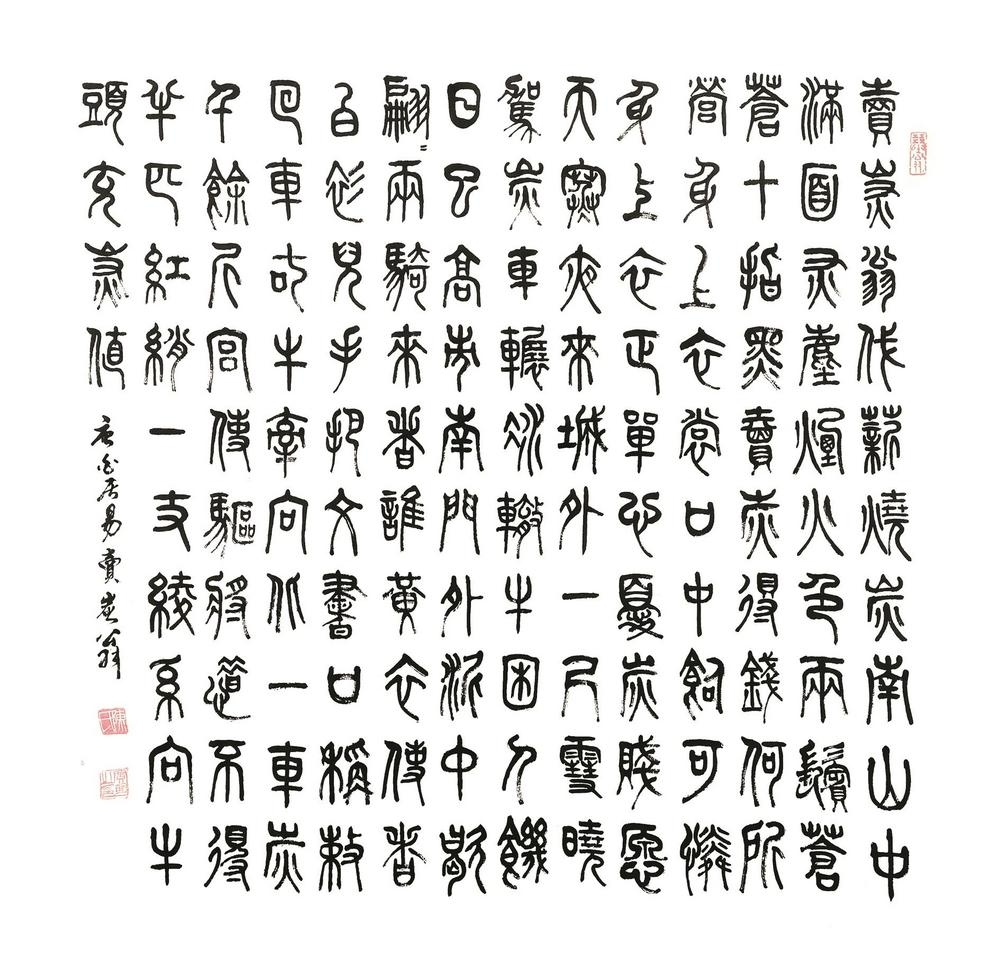 賣炭翁伐薪燒炭南山中
滿面灰塵煙火色兩鬢蒼
蒼十指黑賣炭得錢何所
營身上衣裳口中食可憐
身上衣正單心憂炭賤愿
天寒夜來城外一尺雪曉
駕炭車輾冰轍牛困人饑
日已高市南門外泥中歇
翩〻兩騎來者誰黃衣使者
白衫兒手把文書口稱敕
回車叱牛牽向北一車炭
千餘斤宮使驅將惜不得
半匹紅綃一丈綾系向牛
頭充炭值
唐白居易賣炭翁